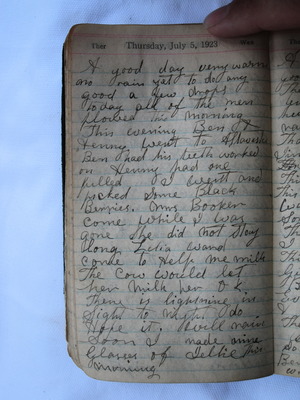 Ther Thursday, July 5, 1923 Wea
A good day very warm
no rain yet to do any
good a few drops
today all of the men
plowed this morning
This evening Ben &
Henry went to
Ben had his teeth worked
on Henny had one
pulled I went and
picked some Black
Berries. Mrs Booker
come while I was
gone she did not stay
long. Zelia wand
come to Help me milk
The Cow would let
her milk her O.K.
There is lightning in
sight to night. I do
Hope it will rain
Soon I made nine
Glasses of Jellie this
morning